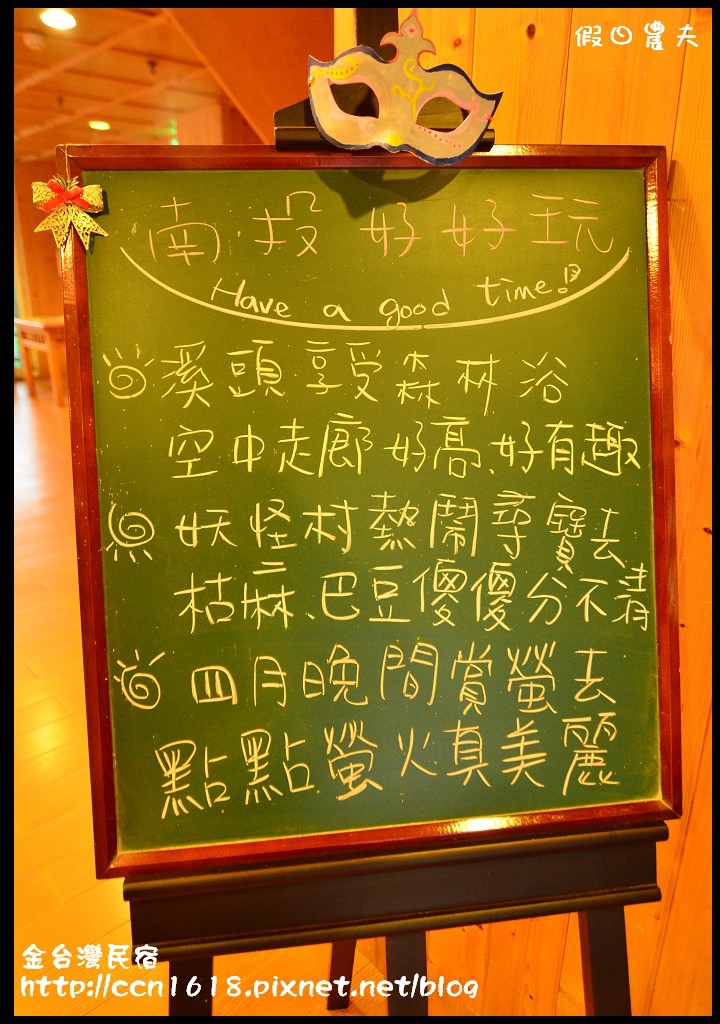 假日農夫
南投好好玩
Have a good time!
溪頭享受森林浴
空中走廊好高、好有趣
妖怪村熱鬧尋寶去
枯麻、巴豆傻傻分不清
四月晚間賞螢去
點點螢火真美麗
金台灣民宿
http://ccn1618.pixnet.net/blog